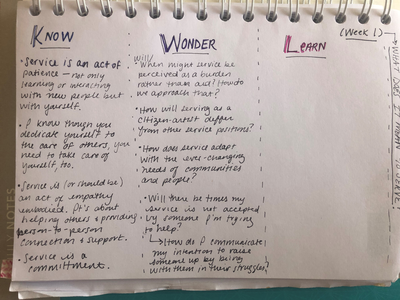 (Week 1)
KNOW
• Service is an act of
patience – not only
learning or interacting
with new people but
with yourself.
• I know though you
dedicate yourself to
the care of others, you
need to take care of
yourself, too.
• Service is (or should be)
an act of empathy
embodied. It's about
helping others & providing
person-to-person
connection & support.
• Service is a
committment.
WONDER
will/
• When might service be
perceived as a burden
rather than aid? How do
we approach that?
• How will serving as a
citizen-artist differ
from other service positions?
• How does service adapt
with the ever-changing
needs of communities
and people?
• Will there be times my
service is not accepted
by someone I'm trying
to help?
↳ How do I communicate
my intention to raise
someone up by being
with them in their struggles?
LEARN
NOTES